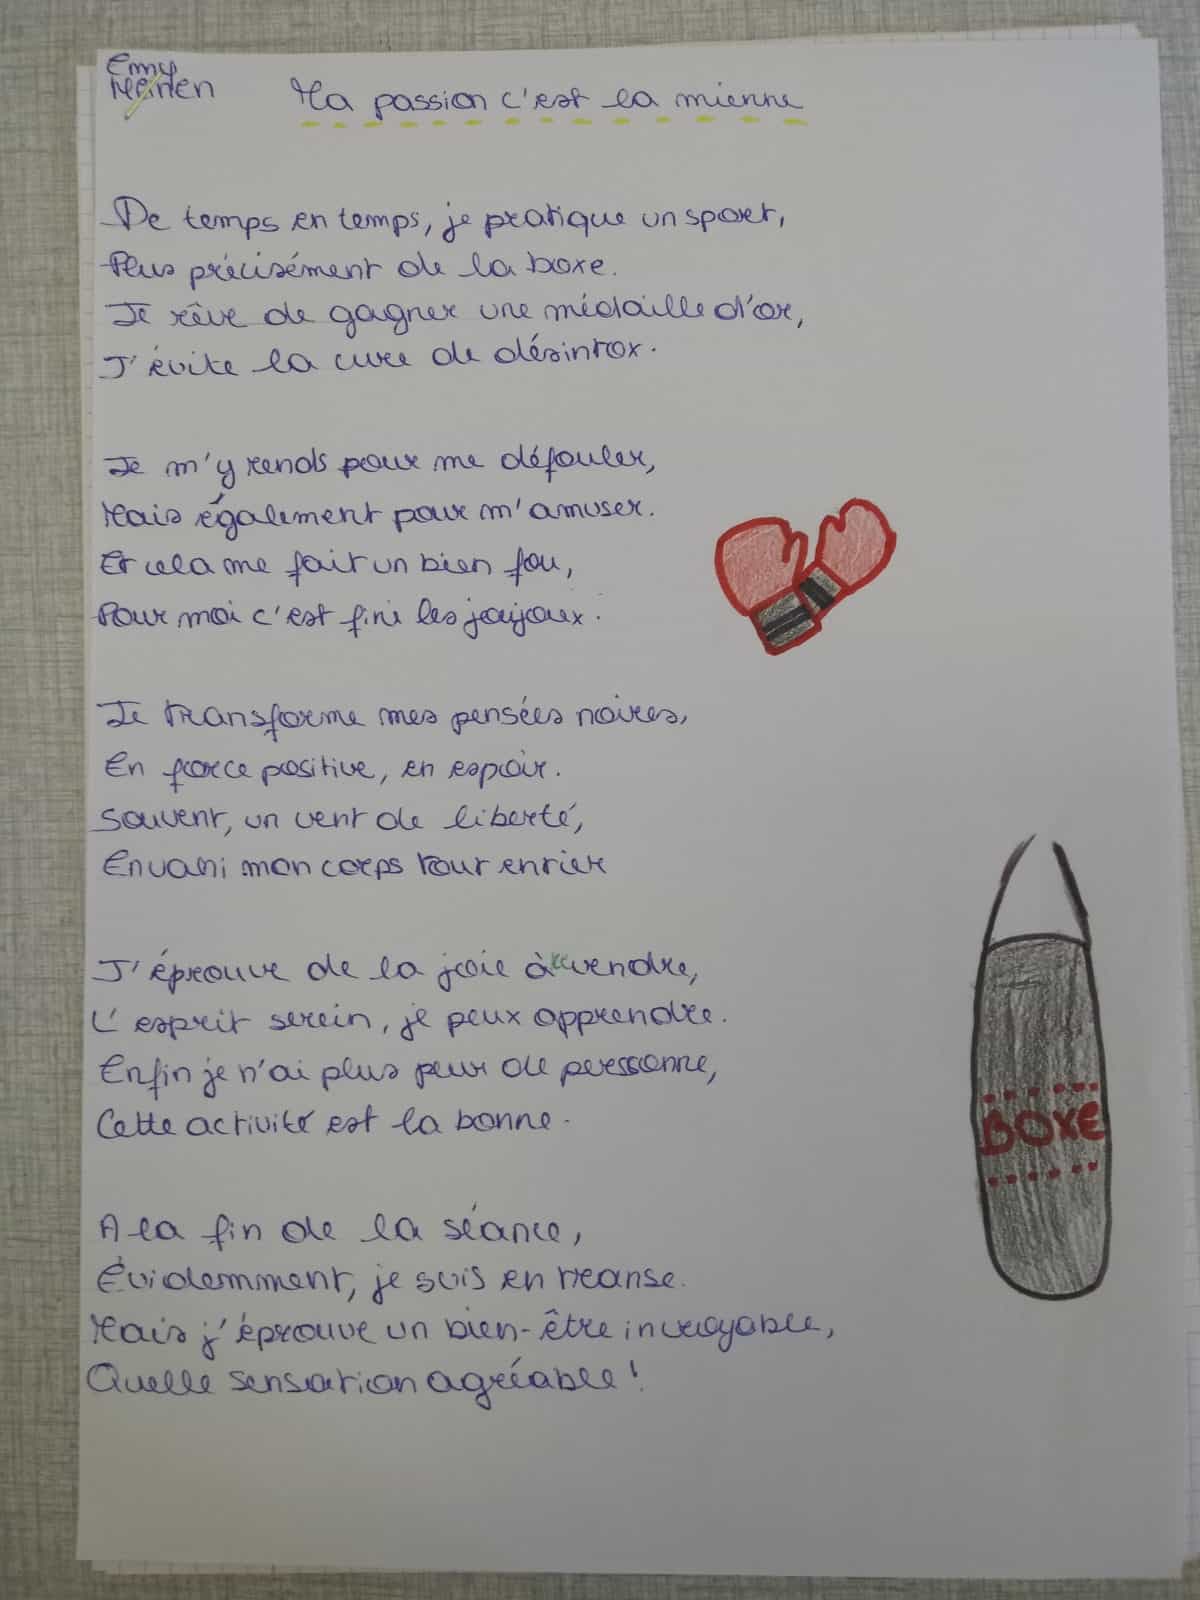 Emy
Ma passion c'est la mienne
De temps en temps, je pratique un sport,
Plus précisément de la boxe.
Je rêve de gagner une médaille d'or,
J'évite la cure de désintox.
Je m'y rends pour me défouler,
Mais également pour m'amuser.
Et cela me fait un bien fou,
Pour moi c'est fini les joujoux.
Je transforme mes pensées noires,
En force positive, en espoir.
Souvent, un vent de liberté,
Envahi mon corps tout entier
J'éprouve de la joie à vendre,
L'esprit serein, je peux apprendre.
Enfin je n'ai plus peur de personne,
Cette activité est la bonne.
A la fin de la séance,
Évidemment, je suis en transe.
Mais j'éprouve un bien-être incroyable,
Quelle sensation agréable !
BOXE